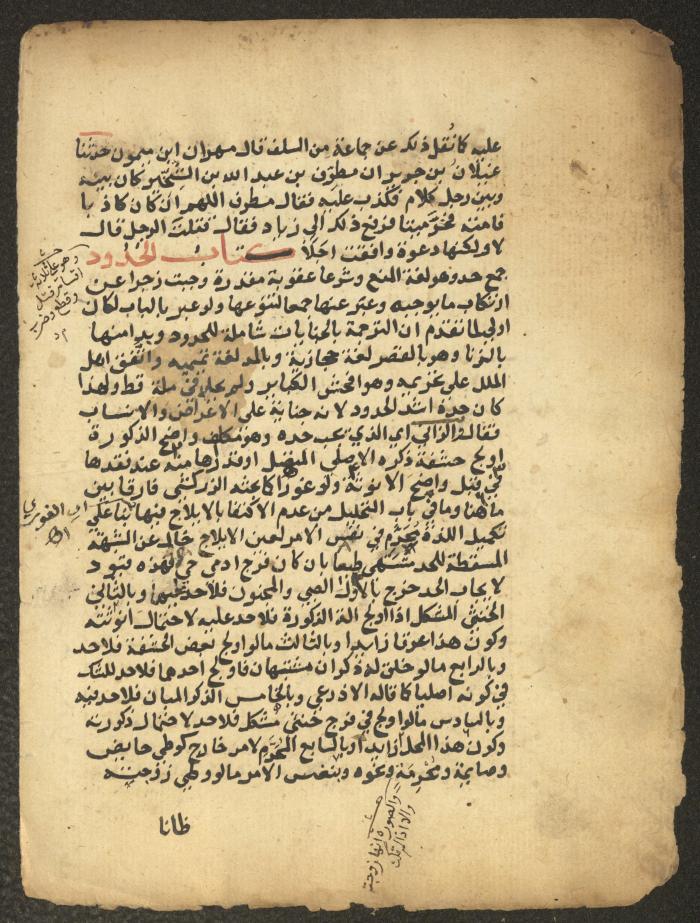 عليه كما نقل ذلك عن جماعة من السلف قال مهران ابن ميمون حدثنا
غيلان بن جرير ان مطرف بن عبد الله بن الشخير كان بينه
وبين رجل كلام فكذب عليه فقال مطرف اللهم ان كان كاذبا
فامته فخر ميتا فرفع ذلك الى زياد فقال قتلت الرجل قال
لا ولكنها دعوة وافقت اجلا كتاب الحدود
جمع حد وهو لغة المنع وشرعا عقوبة مقدرة وجبت زجرا عن
ارتكاب ما يوجبه وعبر عنها جمعا لتنوعها ولو عبر بالباب لكان
اولى لما تقدم ان الترجمة بالجنايات شاملة للحدود وبدا منها
بالزنا وهو بالقصر لغة حجازية وبالمد لغة تميمية واتفق اهل
الملل على تحريمه وهو افحش الكبائر ولم يحل في ملة قط ولهذا
كان حده اشد الحدود لانه جناية على الاعراض والانساب
فقال والزاني اي الذي يجب حده وهو مكلف واضح الذكورة
اولج حشفة ذكره الاصلي المتصل او قدرها منه عند فقدها
في قبل واضح الانوثة ولو غوراء كما بحثه الزركشي فارقا بين
ما هنا وما في باب التحليل من عدم الاكتفا بالايلاج فيها بنا على
تكميل اللذة محرم في نفس الامر لعين الايلاج خال عن الشبهة
المسقطة للحد مشتهى طبعا بان كان فرج ادمي حي فهذه قيود
لايجاب الحد خرج بالاول الصبي والمجنون فلا حد عليهما وبالثاني
الخنثى المشكل اذا اولج الة الذكورة فلا حد عليه لاحتمال انوثته
وكون هذا عرقا زايدا وبالثالث مالو اولج بعض الحشفة فلا حد
وبالرابع مالو خلق له ذكران مشتبهان فاولج احدهما فلا حد للشك
في كونه اصليا كما قاله الاذرعي وبالخامس الذكر المبان فلا حد فيه
وبالسادس مالو اولج في فرج خنثى مشكل فلا حد لاحتمال ذكورته
وكون هذا المحل زايدا وبالسابع المحرم لامر خارج كوطي حايض
وصايمة ومحرمة ونحوه وبنفس الامر مالو وطي زوجته
ظانا
وهو على ثلاثة
اقسام قتل
وقطع وضرب
والصورة انها زوجته